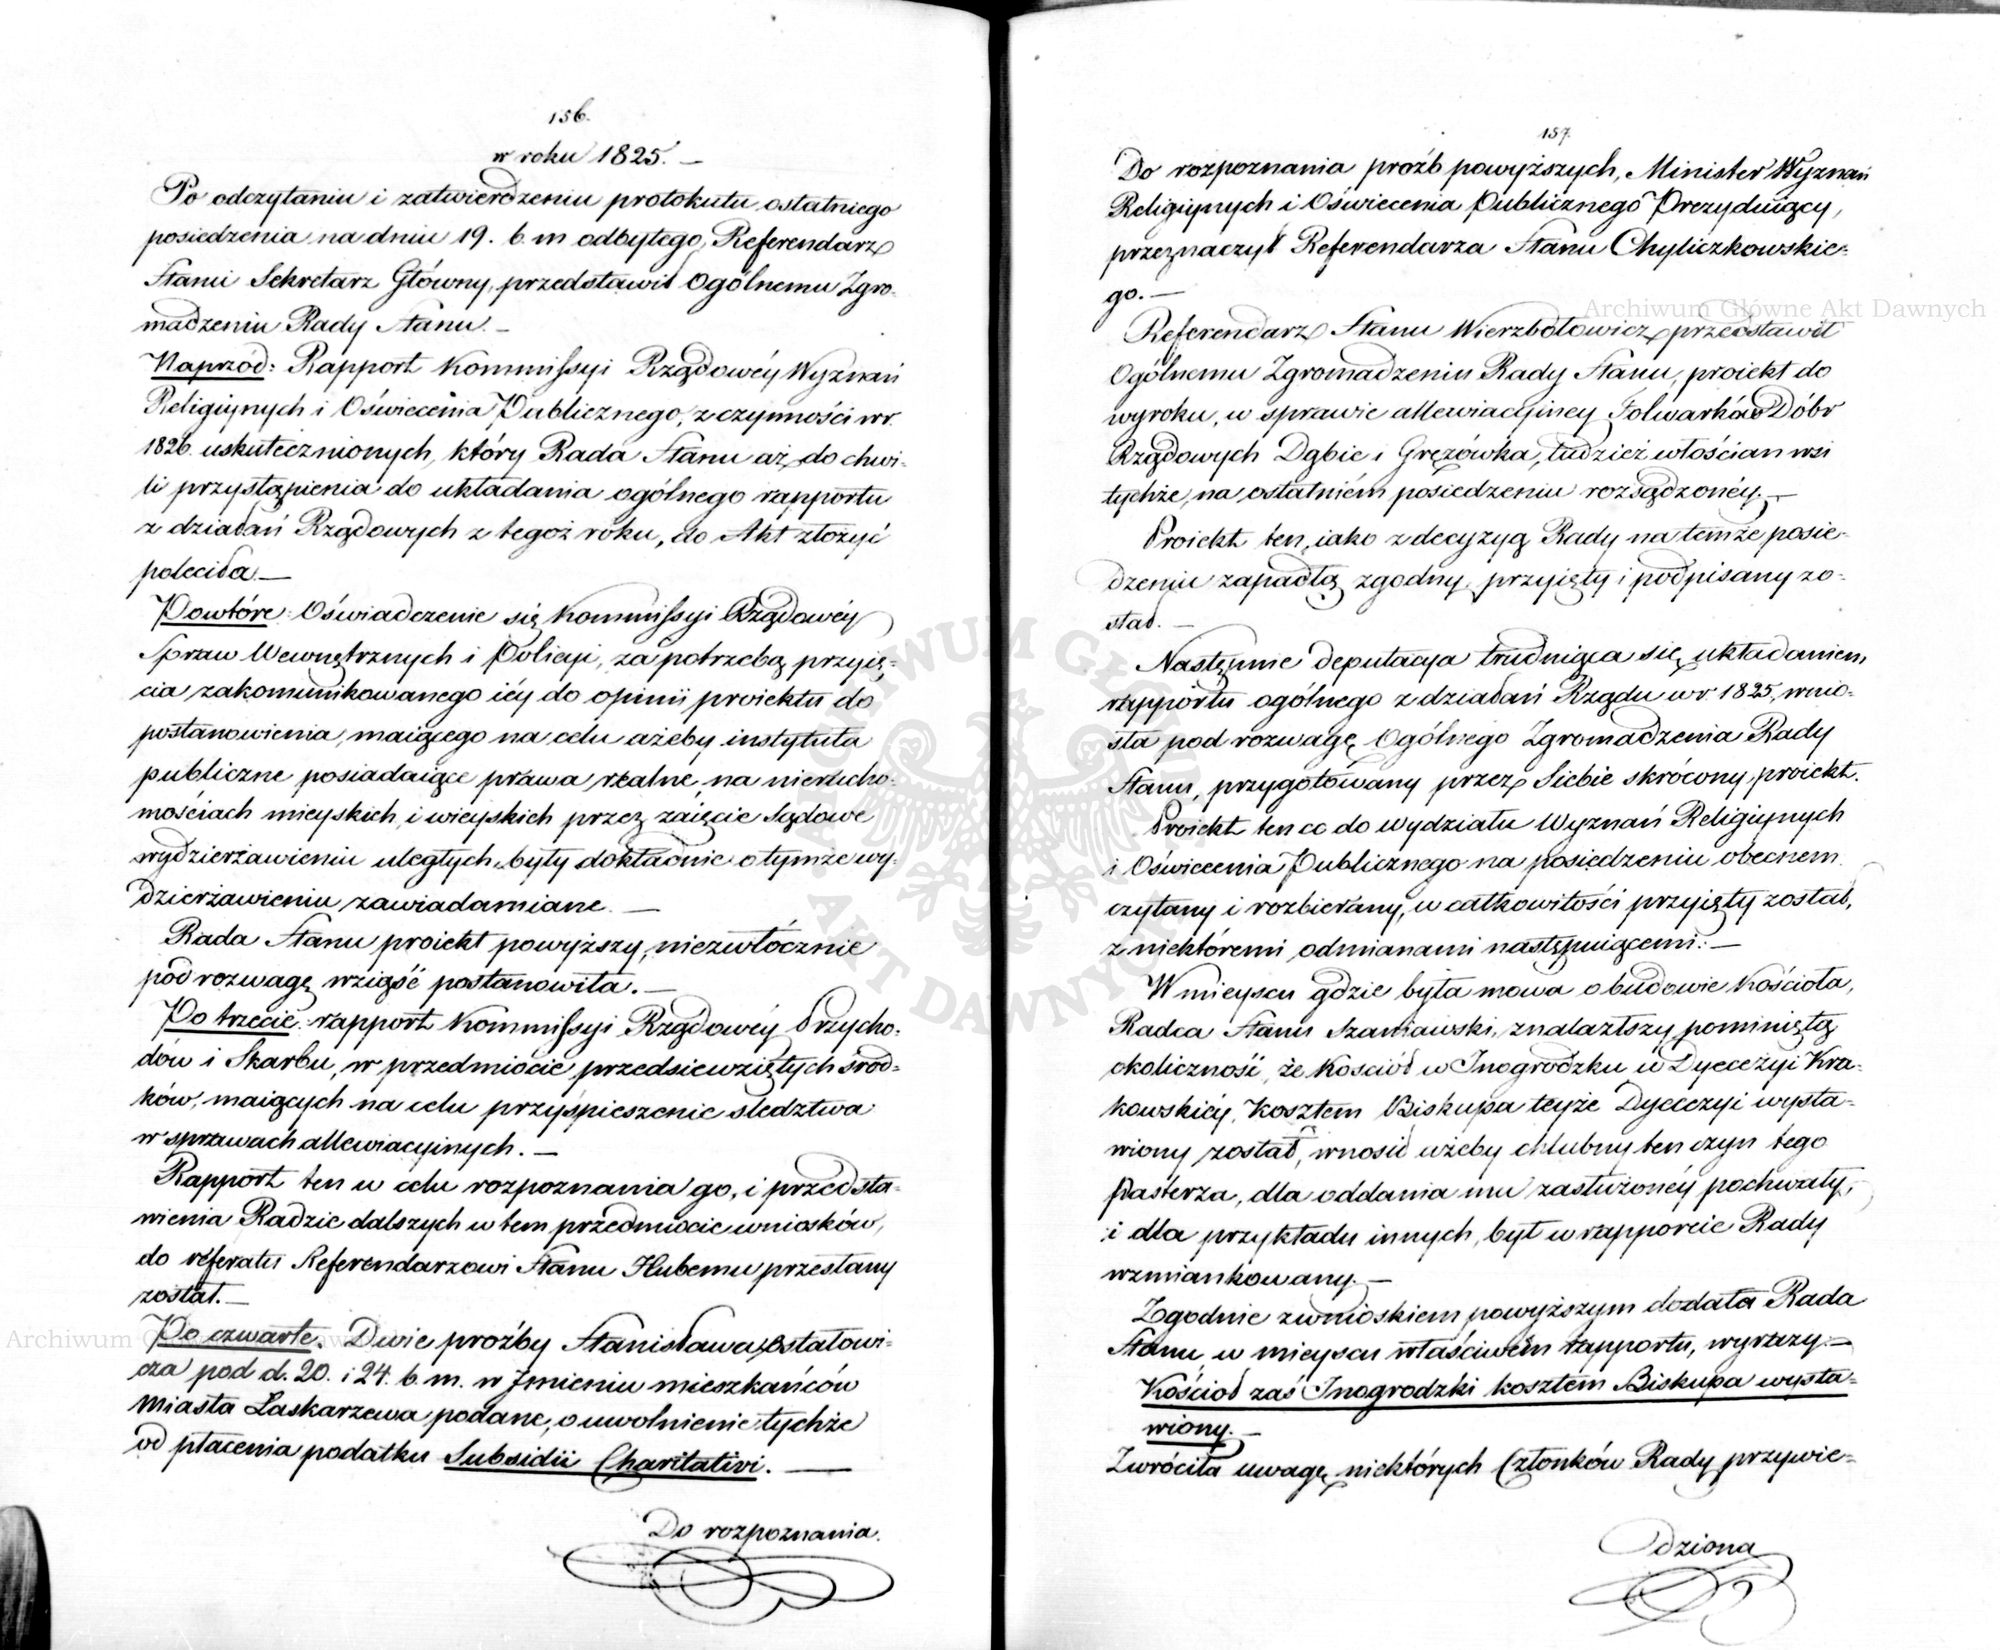 156.
w roku 1825. —
Po odczytaniu i zatwierdzeniu protokułu ostatniego
posiedzenia na dniu 19. b. m odbytego, Referendarz
Stanu Sekretarz Główny, przedstawił Ogólnemu Zgro-
madzeniu Rady Stanu. —
Naprzód: Rapport Kommissyi Rządowéy Wyznań
Religiynych i Oświecenia Publicznego, z czynności w r.
1826. uskutecznionych, który Rada Stanu aż do chwi-
li przystąpienia do układania ogólnego rapportu
z działań Rządowych z tegoż roku, do Akt złożyć
poleciła. —
Powtóre: Oświadczenie się Kommissyi Rządowéy
Spraw Wewnętrznych i Policyi, za potrzebą przyię-
cia zakomunikowanego iéy do opinii proiektu do
postanowienia, maiącego na celu ażeby instytuta
publiczne posiadaiące prawa realne na nierucho-
mościach mieyskich i wieyskich przez zaięcie Sądowe
wydzierżawieniu uległych, były dokładnie o tymże wy-
dzierżawieniu zawiadamiane. —
Rada Stanu proiekt powyższy, niezwłócznie
pod rozwagę wziąść postanowiła. —
Po trzecie: rapport Kommissyi Rządowéy Przycho-
dów i Skarbu, w przedmiocie przedsięwziętych środ-
ków, maiących na celu przyśpieszenie śledztwa
w sprawach allewiacyinych. —
Rapport ten w celu rozpoznania go, i przedsta-
wienia Radzie dalszych w tem przedmiocie wniosków,
do referatu Referendarzowi Stanu Hubemu przesłany
został. —
Po czwarte. Dwie proźby Stanisława Ostałowi-
cza pod d. 20. i 24. b. m. w Jmieniu mieszkańców
Miasta Łaskarzewa podane, o uwolnienie tychże
od płacenia podatku Subsidii Charitativi. —
Do rozpoznania.
157.
Do rozpoznania proźb powyższych, Minister Wyznań
Religiynych i Oświecenia Publicznego Prezyduiący,
przeznaczył Referendarza Stanu Chyliczkowskie-
go. —
Referendarz Stanu Wierzbołowicz przedstawił
Ogólnemu Zgromadzeniu Rady Stanu, proiekt do
wyroku, w sprawie allewiacyiney Folwarków Dóbr
Rządowych Dąbie i Gręzówka, tudzież włościan wsi
tychże, na ostatniém posiedzeniu rozsądzonéy. —
Proiekt ten, iako z decyzyą Rady na temże posie-
dzeniu zapadłą zgodny, przyięty i podpisany zo-
stał. —
Następnie deputacya trudniąca się układaniem
rapportu ogólnego z działań Rządu w r. 1825, wnio-
sła pod rozwagę Ogólnego Zgromadzenia Rady
Stanu, przygotowany przez Siebie skrócony proiekt.
Proiekt ten co do wydziału Wyznań Religiynych
i Oświecenia Publicznego na posiedzeniu obecnem
czytany i rozbierany, w całkowitości przyięty został,
z niektóremi odmianami następuiącemi: —
W mieyscu gdzie była mowa o budowie Kościoła,
Radca Stanu Szaniawski, znalazłszy pominiętą
okoliczność, że Kosciół w Jnogrodzku w Dyecezyi Kra-
kowskiéy, kosztem Biskupa teyże Dyecezyi wysta-
wiony został, wnosił ażeby chlubny ten czyn tego
Pasterza, dla oddania mu zasłużonéy pochwały,
i dla przykładu innych, był w rapporcie Rady
wzmiankowany. —
Zgodnie z wnioskiem powyższym dodała Rada
Stanu w mieyscu właściwém rapportu, wyrazy: —
Kościoł zaś Jnogrodzki kosztem Biskupa wysta-
wiony. —
Zwróciła uwagę niektórych Członków Rady przywie-
dziona
Archiwum Główne Akt Dawnych